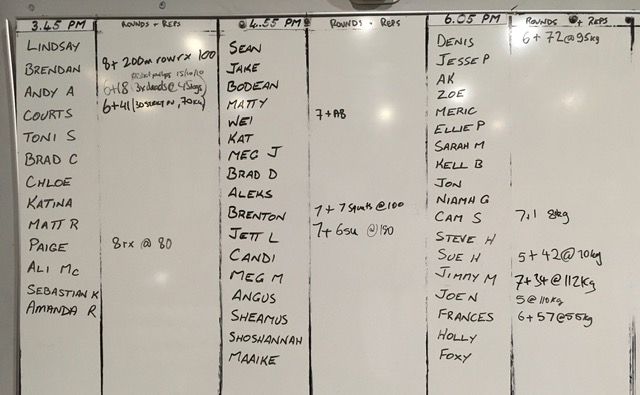 3.45 PM
ROUNDS + REPS
LINDSAY
BRENDAN
8+ 200m row rx 100
ANDY A
6+18 (3xdeads @ 45kgs)
COURTS
6+41 (30 , 70kg)
TONI S
BRAD C
CHLOE
KATINA
MATT R
PAIGE
8rx @ 80
ALI Mc
SEBASTIAN K
AMANDA R
4.55 PM
ROUNDS + REPS
SEAN
JAKE
BODEAN
MATTY
WEI
7+AB
KAT
MEG J
BRAD D
ALEKS
BRENTON
7+7 squats @100
JETT L
7+6su @190
CANDI
MEG M
ANGUS
SHEAMUS
SHOSHANNAH
MAAIKE
6.05 PM
ROUNDS + REPS
DENIS
6+72@95kg
JESSE P
AK
ZOE
MERIC
ELLIE P
SARAH M
KELL B
JON
NIAMH G
CAM S
7,1 8kg
STEVE H
SUE H
5+42@70kg
JIMMY M
7+34@112kg
JOE N
5@110kg
FRANCES
6+57@55kg
HOLLY
FOXY